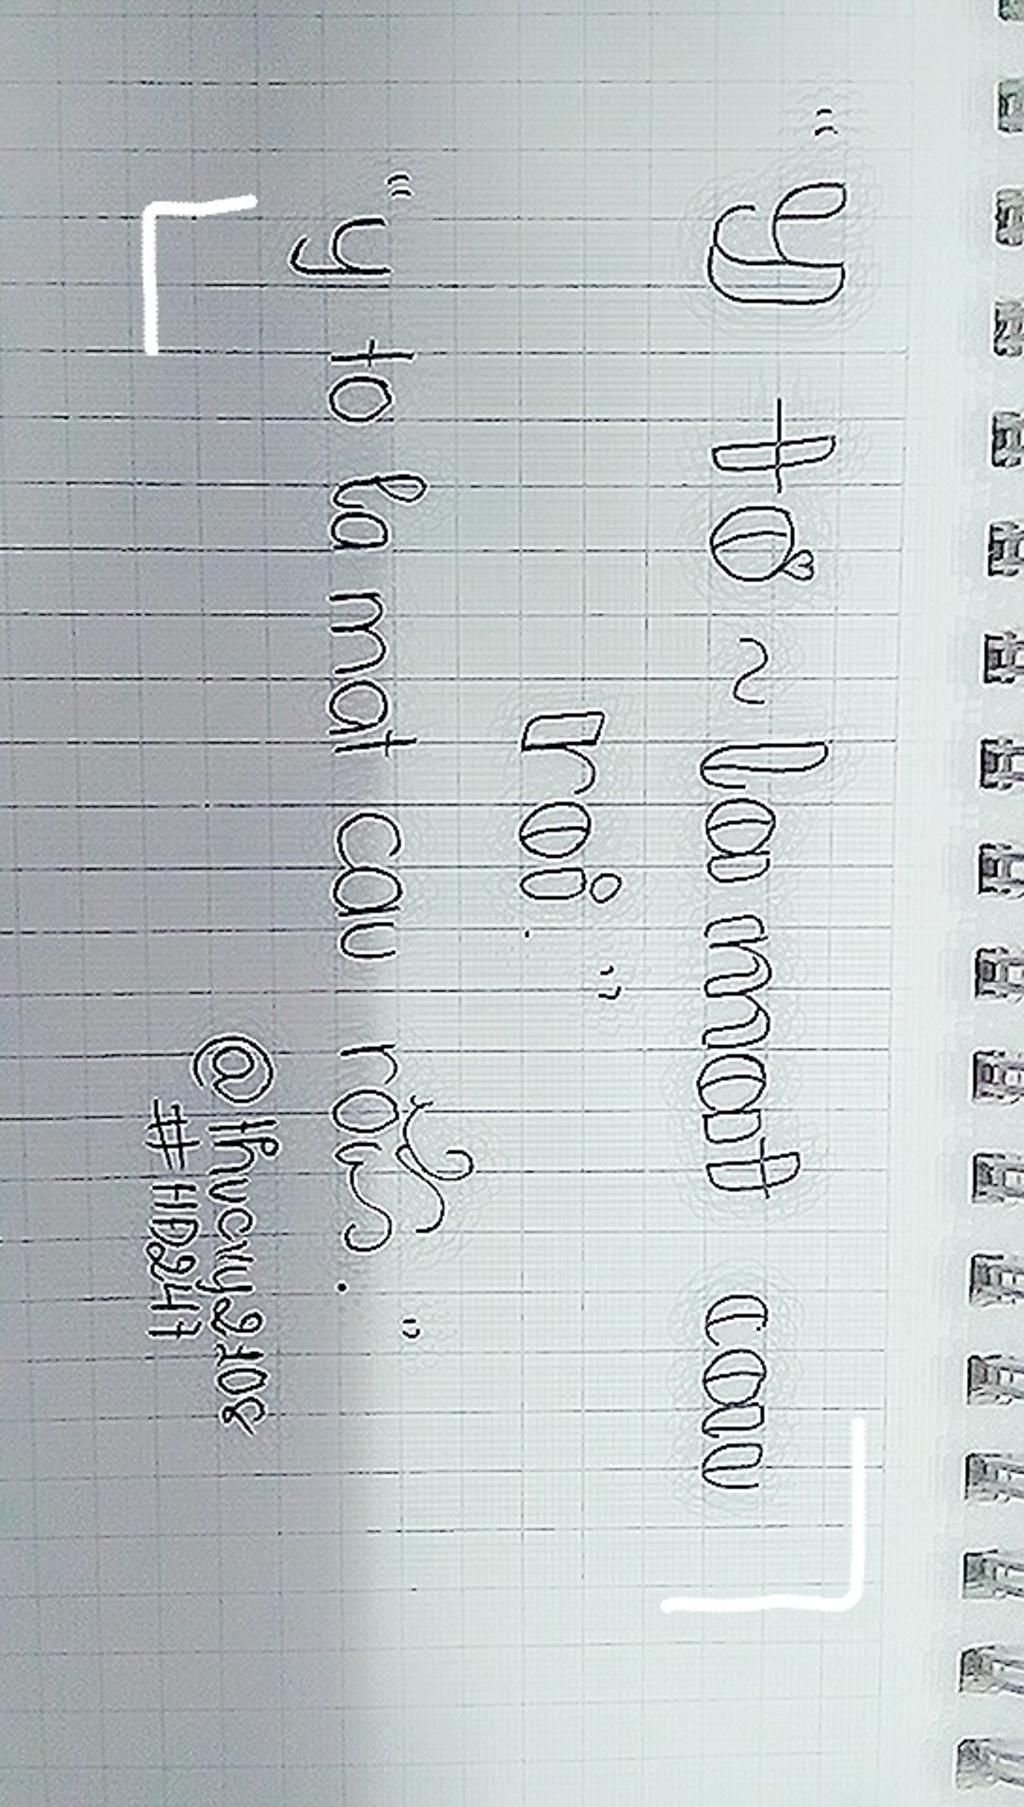 "y tớ ~ la mat cau
roi."
"y to la mat cau roi."
@thucvy2108
#HD247